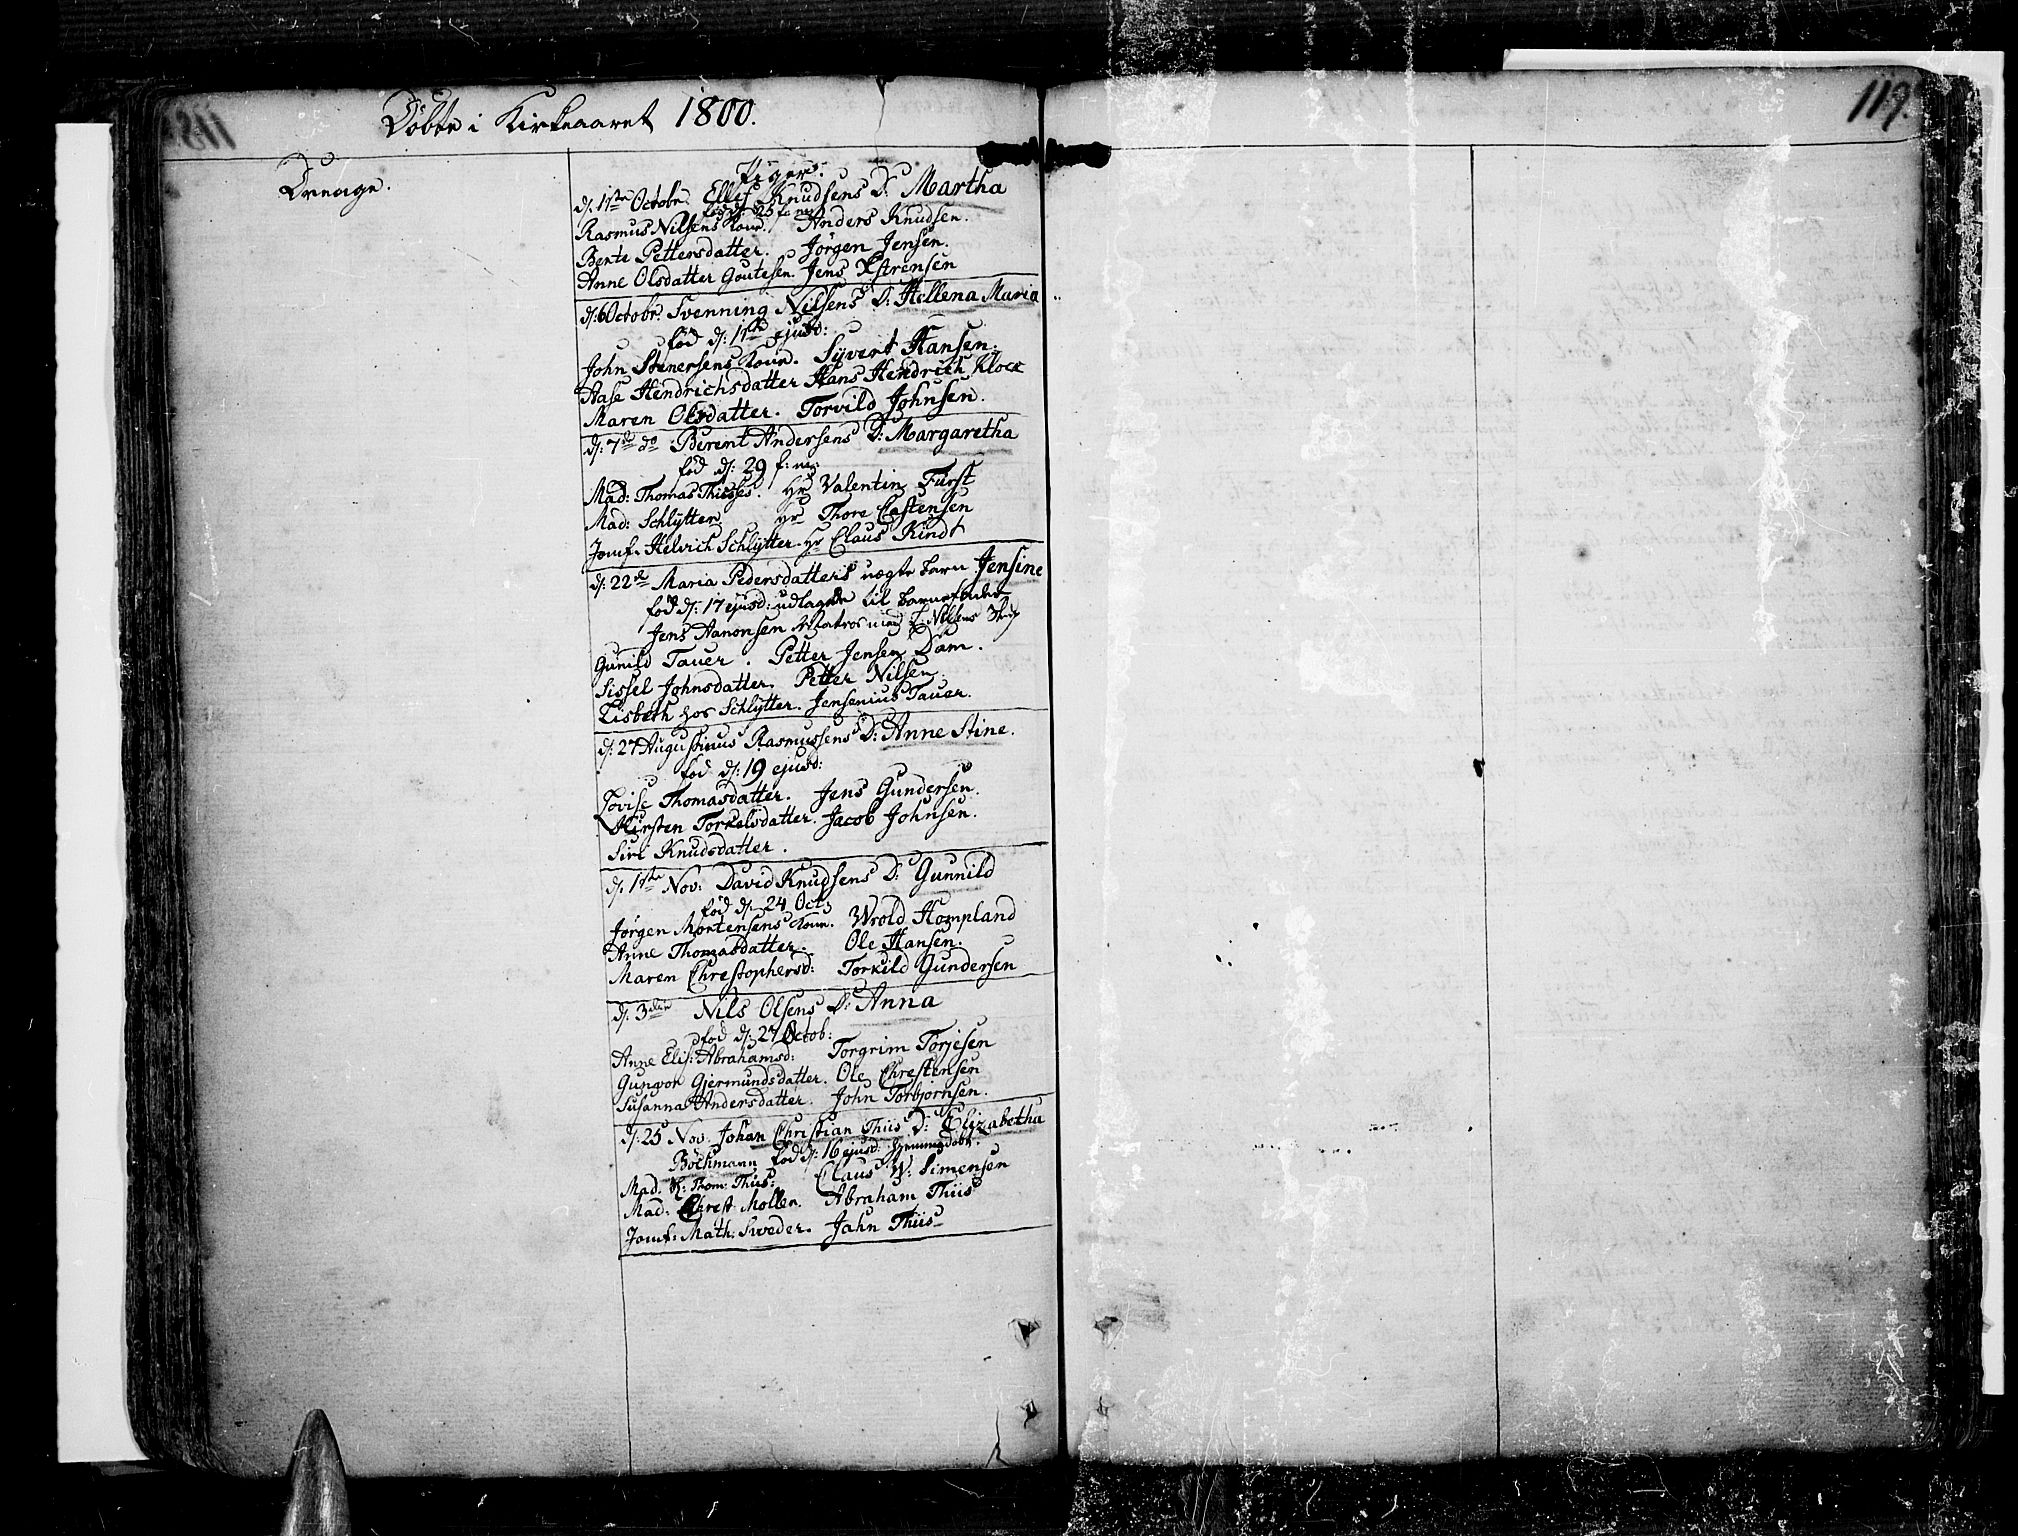 Döbte i Kirkeaaret 1800.
119.
Drenge.
Piger:
d. 1ste Octobr. Ellef Knudsens D: Martha
fød d: 25 f: m:
Rasmus Nilsens Kone. Anders Knudsen.
Bente Pettersdatter. Jörgen Jensen.
Anne Olsdatter Goutesen. Jens Østrensen
d: 6 Octobr. Svenning Nilsens D: Hellena Maria
fød d: 1ste ejusd:
John Stenersens Kone. Syvert Hansen.
Aase Hendrichsdatter Hans Hendrich Klock
Maren Olsdatter. Torvild Johnsen.
d: 7de do Berent Andersens D: Margaretha
fød d: 29 f: m:
Mad: Thomas Thisses. Hr Valentin Fürst
Mad: Schlytter. Hr Thore Castensen
Jomf. Helvich Schlytter. Hr Claus Kindt
d: 22de Maria Pedersdatters uægte barn Jensine
fød d: 17 ejusd: udlagde til barnefader
Jens Aanonsen Matros med Nilsens Skip
Gunild Tauer. Petter Jensen Dam.
Sissel Johnsdatter. Petter Nilsen.
Lisbeth hos Schlytter. Jensenius Tauer.
d: 27 Augustinus Rasmussens D: Anne Stine.
fød d: 19 ejusd:
Lovise Thomasdatter. Jens Gundersen.
Kirsten Torkelsdatter. Jacob Johnsen.
Siri Knudsdatter.
d. 1ste Nov: David Knudsens D: Gunnild
fød d. 24 Oct:
Jørgen Mortensens Kone. Wrold Hompland
Anne Thomasdatter. Ole Hansen.
Maren Chrestophersd: Torkild Gundersen
d: 3die Nils Olsens D: Anna
fød d. 27 Octob:
Anne Elis: Abrahamsd: Torgrim Torjesen
Gunvor Gjermundsdatter. Ole Chrestensen
Susanna Andersdatter. John Torbjornsen.
d: 25 Nov. Johan Christian Thiis D: Elizabetha
Böckmann fød d: 16 ejusd: hjemmedøbt.
Mad. H: Thom: Thiis: Claus W: Simensen
Mad: Chrest Mollen. Abraham Thiis
Jomf: Math: Sweder. Jahn Thiis